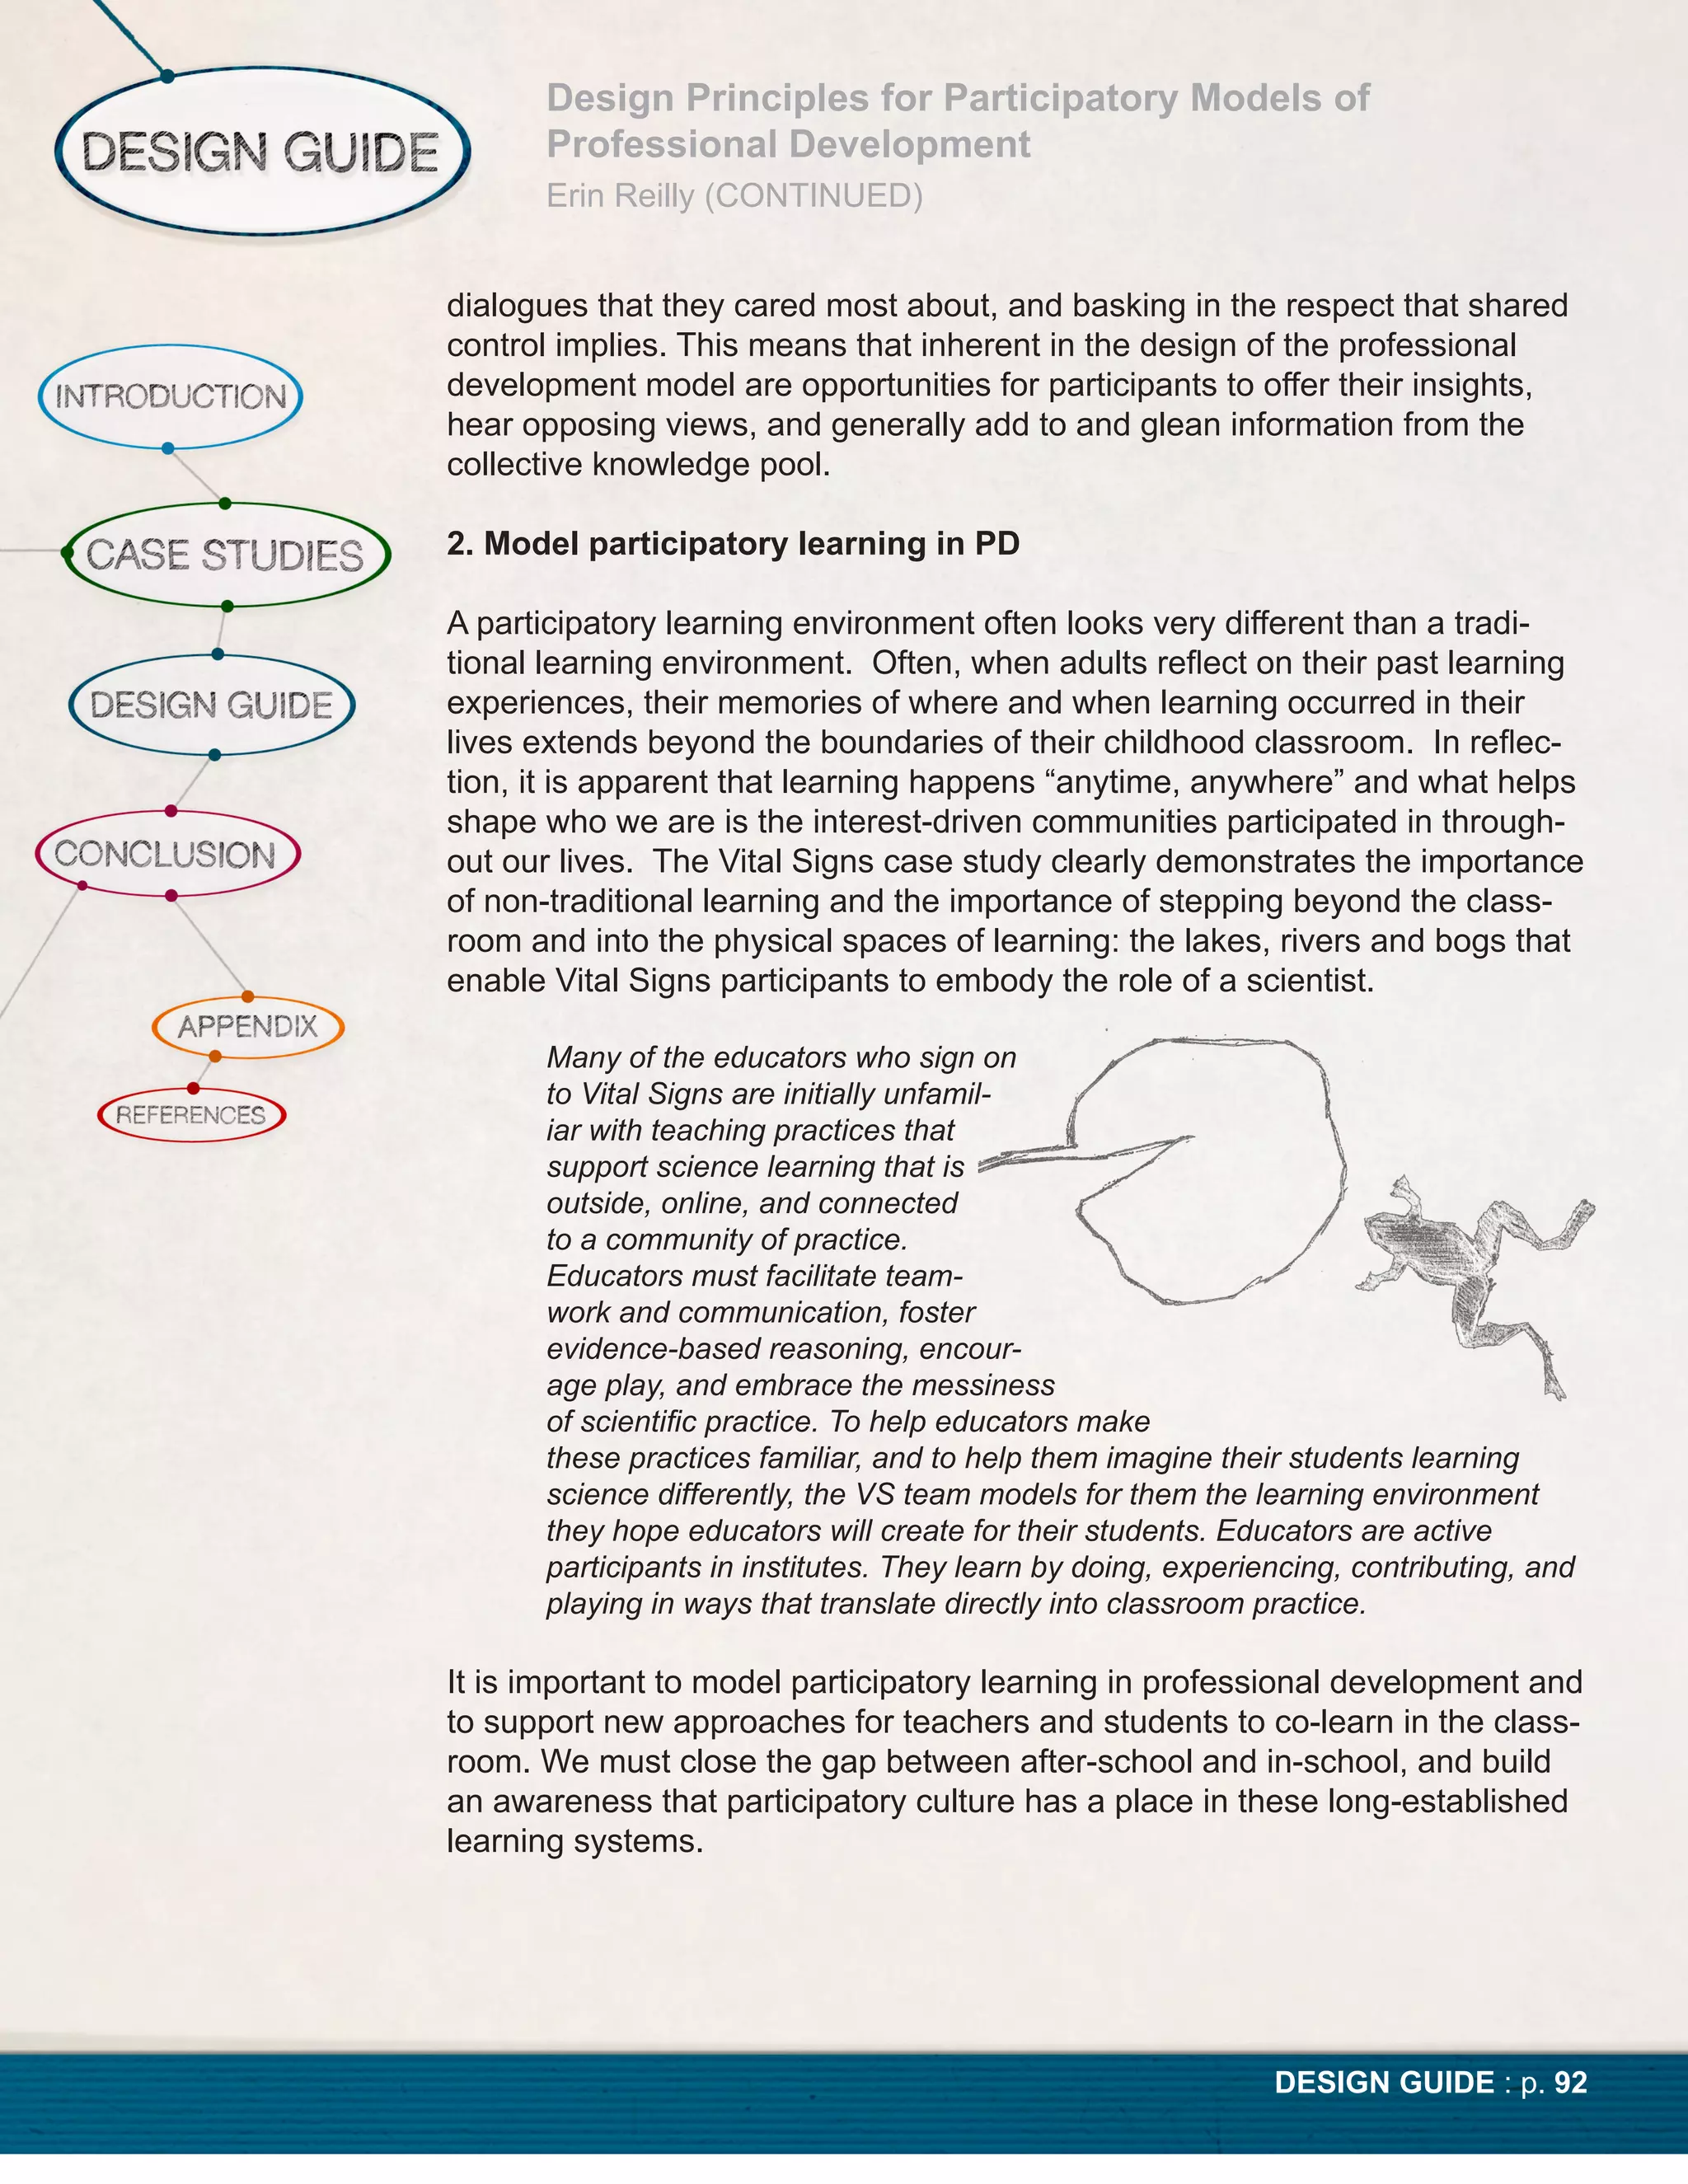 DESIGN GUIDE
Design Principles for Participatory Models of
Professional Development
Erin Reilly (CONTINUED)
INTRODUCTION
CASE STUDIES
DESIGN GUIDE
CONCLUSION
APPENDIX
REFERENCES
dialogues that they cared most about, and basking in the respect that shared
control implies. This means that inherent in the design of the professional
development model are opportunities for participants to offer their insights,
hear opposing views, and generally add to and glean information from the
collective knowledge pool.
2. Model participatory learning in PD
A participatory learning environment often looks very different than a tradi-
tional learning environment.  Often, when adults reflect on their past learning
experiences, their memories of where and when learning occurred in their
lives extends beyond the boundaries of their childhood classroom.  In reflec-
tion, it is apparent that learning happens “anytime, anywhere” and what helps
shape who we are is the interest-driven communities participated in through-
out our lives.  The Vital Signs case study clearly demonstrates the importance
of non-traditional learning and the importance of stepping beyond the class-
room and into the physical spaces of learning: the lakes, rivers and bogs that
enable Vital Signs participants to embody the role of a scientist.
Many of the educators who sign on
to Vital Signs are initially unfamil-
iar with teaching practices that
support science learning that is
outside, online, and connected
to a community of practice.
Educators must facilitate team-
work and communication, foster
evidence-based reasoning, encour-
age play, and embrace the messiness
of scientific practice. To help educators make
these practices familiar, and to help them imagine their students learning
science differently, the VS team models for them the learning environment
they hope educators will create for their students. Educators are active
participants in institutes. They learn by doing, experiencing, contributing, and
playing in ways that translate directly into classroom practice.
It is important to model participatory learning in professional development and
to support new approaches for teachers and students to co-learn in the class-
room. We must close the gap between after-school and in-school, and build
an awareness that participatory culture has a place in these long-established
learning systems.
DESIGN GUIDE : p. 92